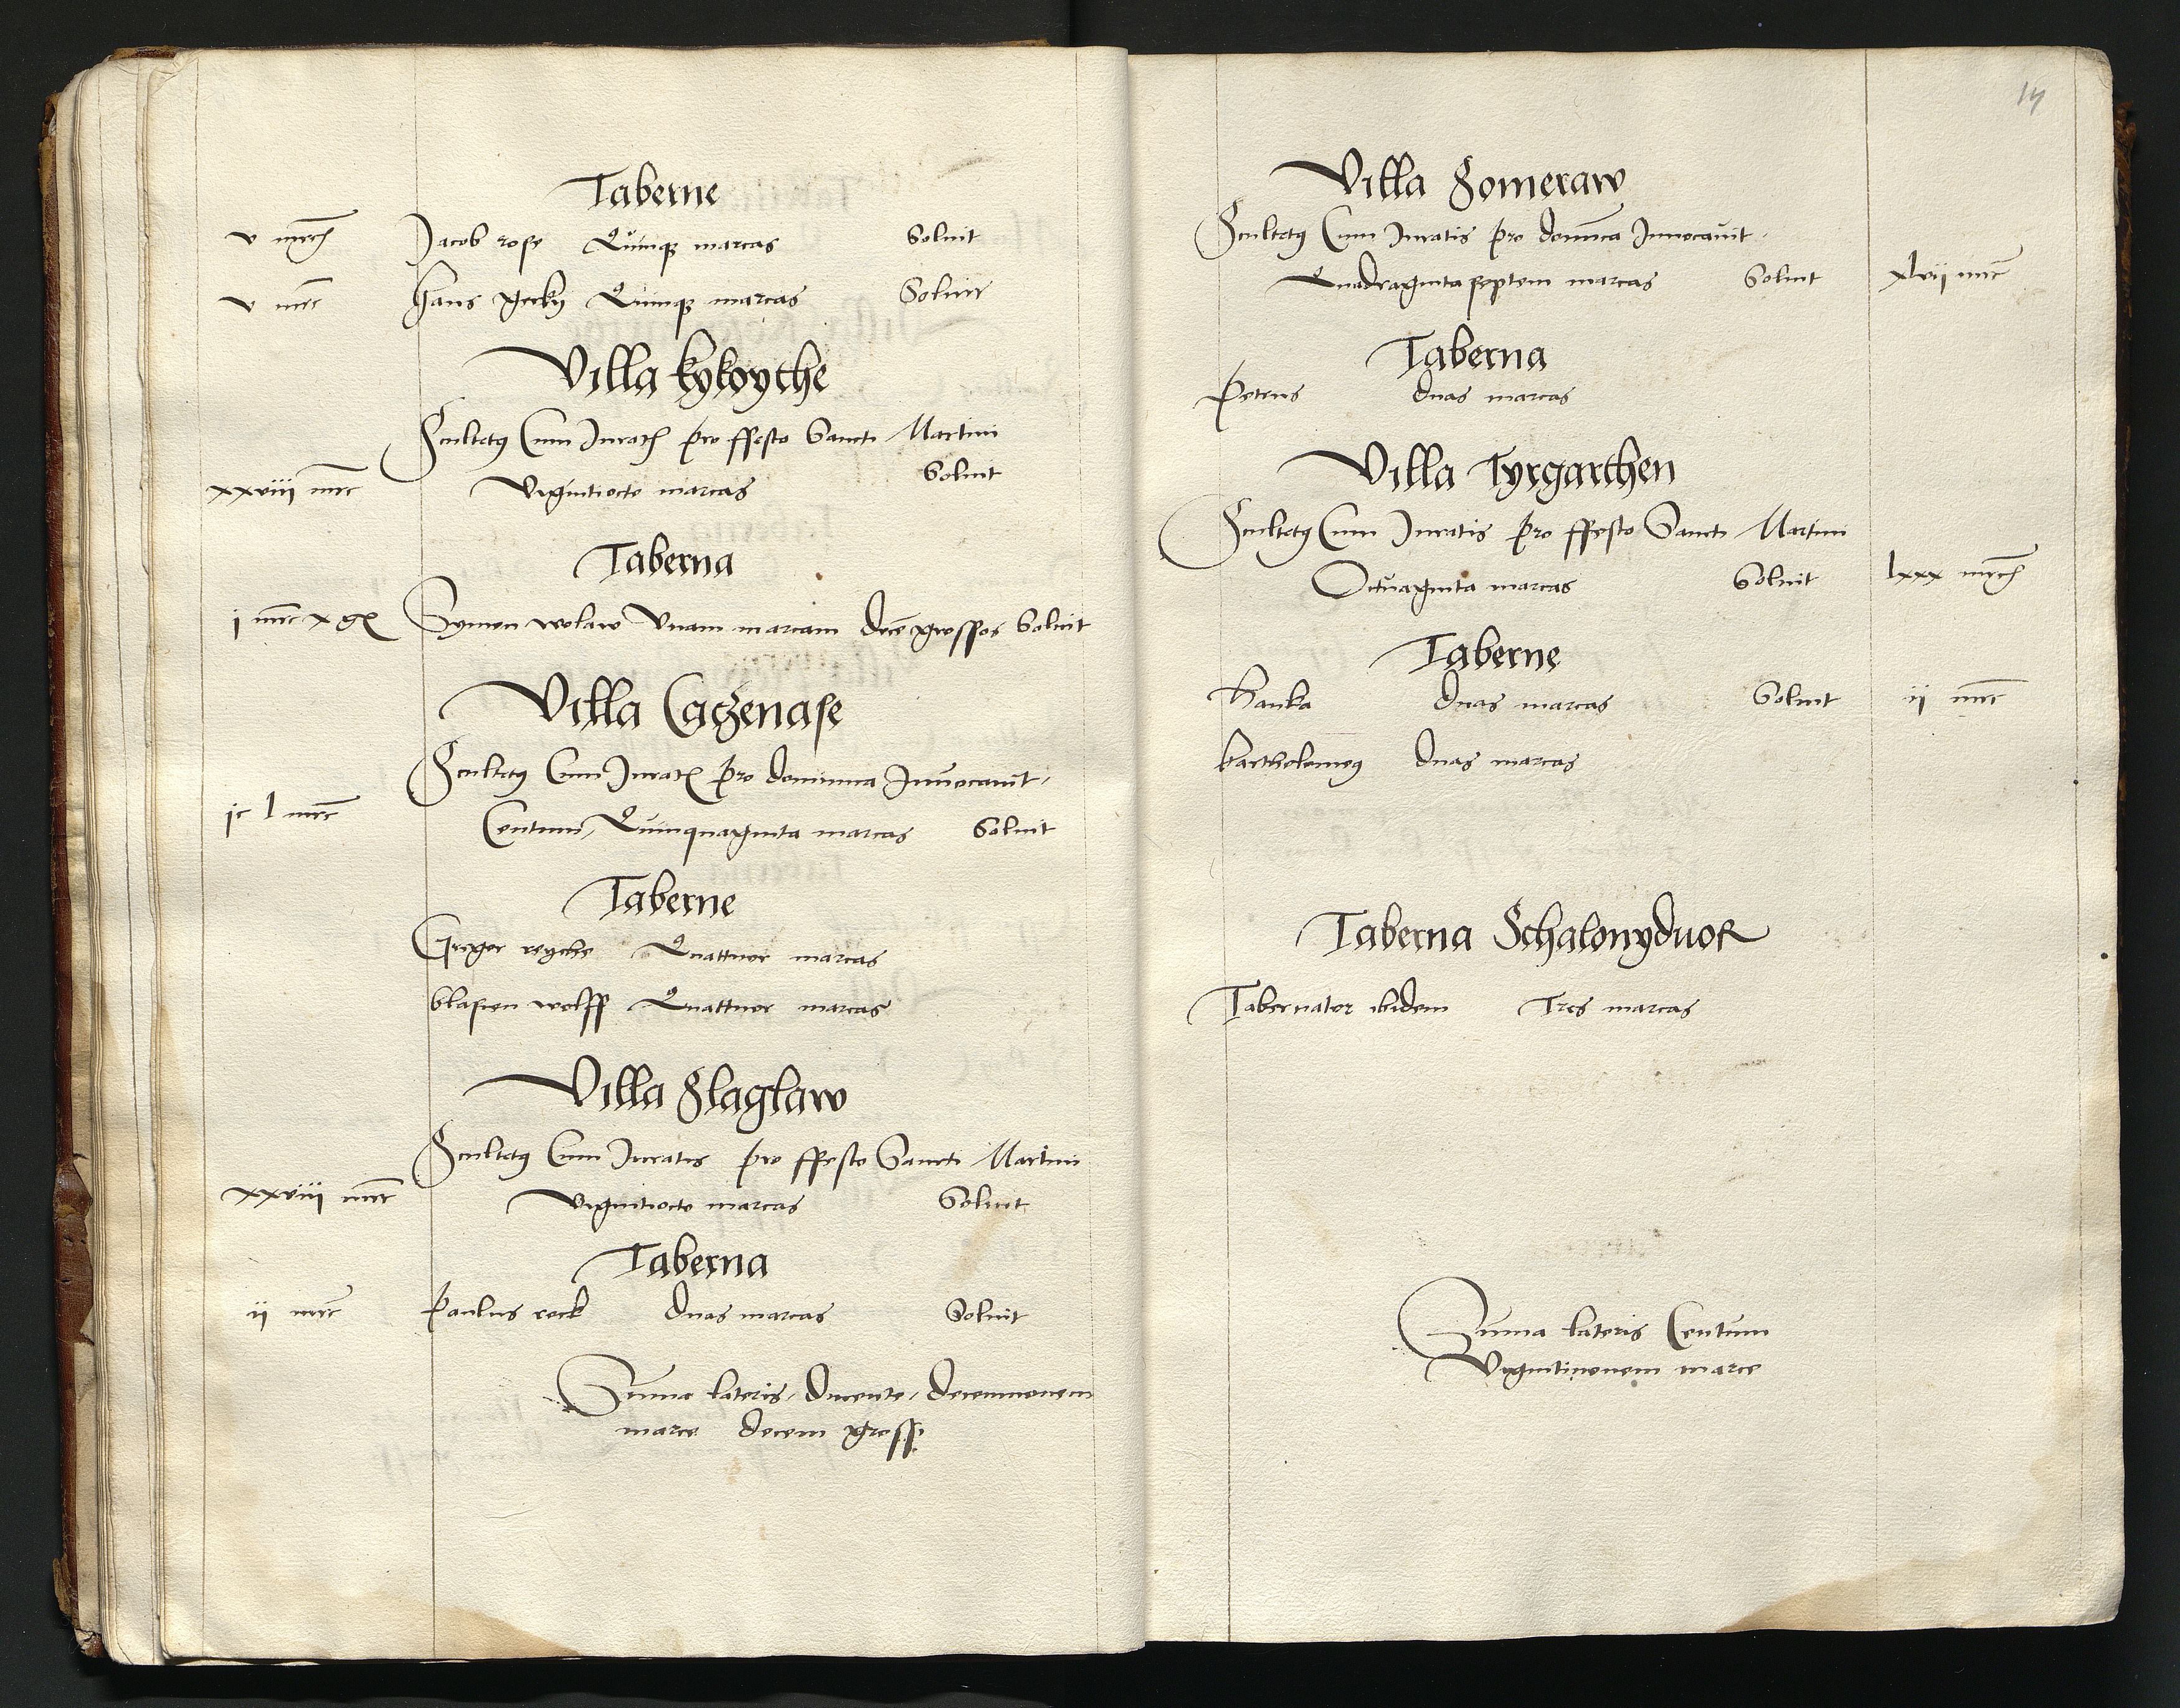 Taberne
v mrc Jacob rose Quinqz marcas Soluit
v mrc Hans gecky Quinqz marcas Soluit
Villa kykoythe
Scultetus Cum Jurat pro ffesto Sancti Martini
xxviii mrc Vigintiocto marcas Soluit
Taberna
j mrc x gr Symon wolaw Vnam marcam dece grossos Soluit
Villa Cazenase
Scultetus Cum Jurat pro dominica Inuocauit
jc l mrc Centum, Quinquaginta marcas Soluit
Taberne
Gregor reyche Quattuor marcas
blasien wolff Quattuor marcas
Villa Slaglaw
Scultetus Cum Juratis pro ffesto Sancti Martini
xxviii mrc Vigintiocto marcas Soluit
Taberna
ij mrc Paulus rock duas marcas Soluit
Suma lateris, ducente, decemnouem
marce decem gross
14
Villa Someraw
Scultetus Cum Juratis pro domnca Innocauit
Quadraginta septem marcas Soluit xlvij mrc
Taberna
Petrus duas marcas
Villa Tyrgarthen
Scultetus Cum Juratis pro ffesto Sancti Martini
Octuaginta marcas Soluit lxxx mrc
Taberne
Hanka duas marcas Soluit ij mrc
bartholomeus duas marcas
Taberna Schalonyduor
Tabernator ibidem Tres marcas
Suma lateris Centum
Vigintinouem marce